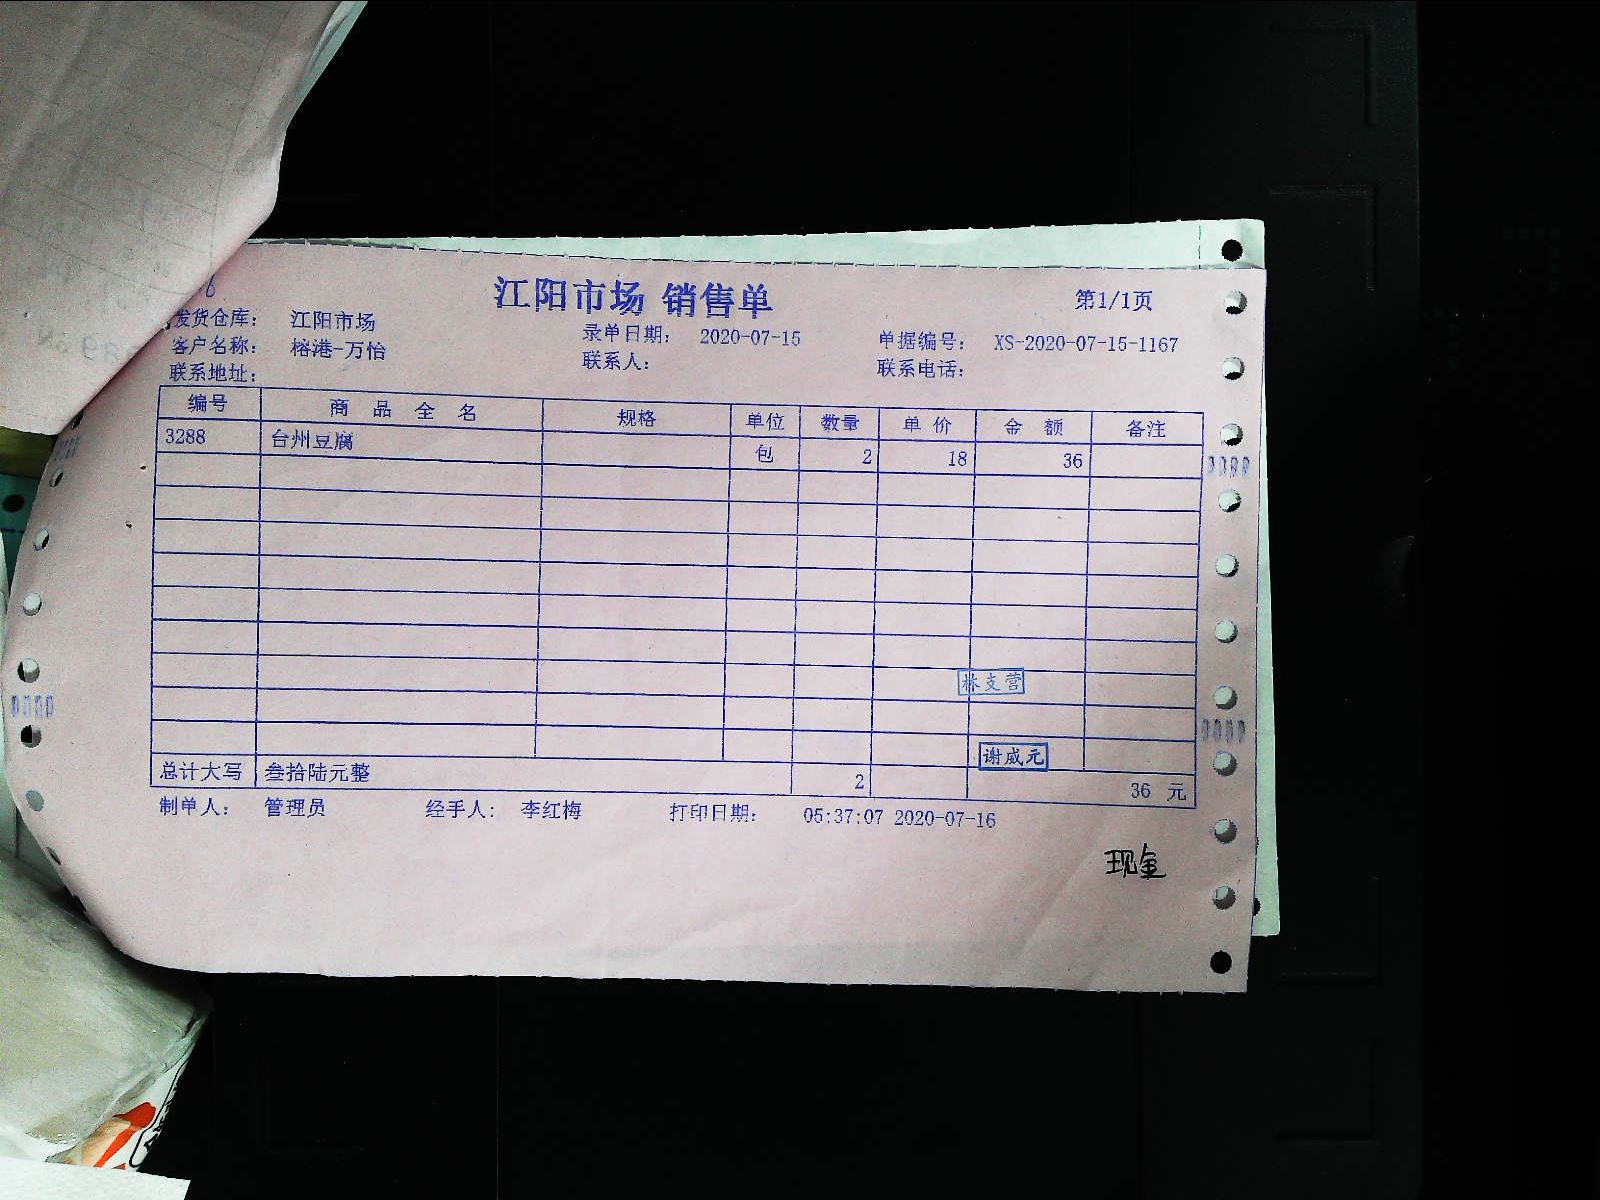 江阳市场 销售单
第1/1页
发货仓库： 江阳市场 录单日期： 2020-07-15 单据编号： XS-2020-07-15-1167
客户名称： 榕港-万怡 联系人： 联系电话：
联系地址：
编号 商品全名 规格 单位 数量 单价 金额 备注
3288 台州豆腐 包 2 18 36
林支营
谢威元
总计大写 叁拾陆元整 2 36 元
制单人： 管理员 经手人： 李红梅 打印日期： 05:37:07 2020-07-16
现金